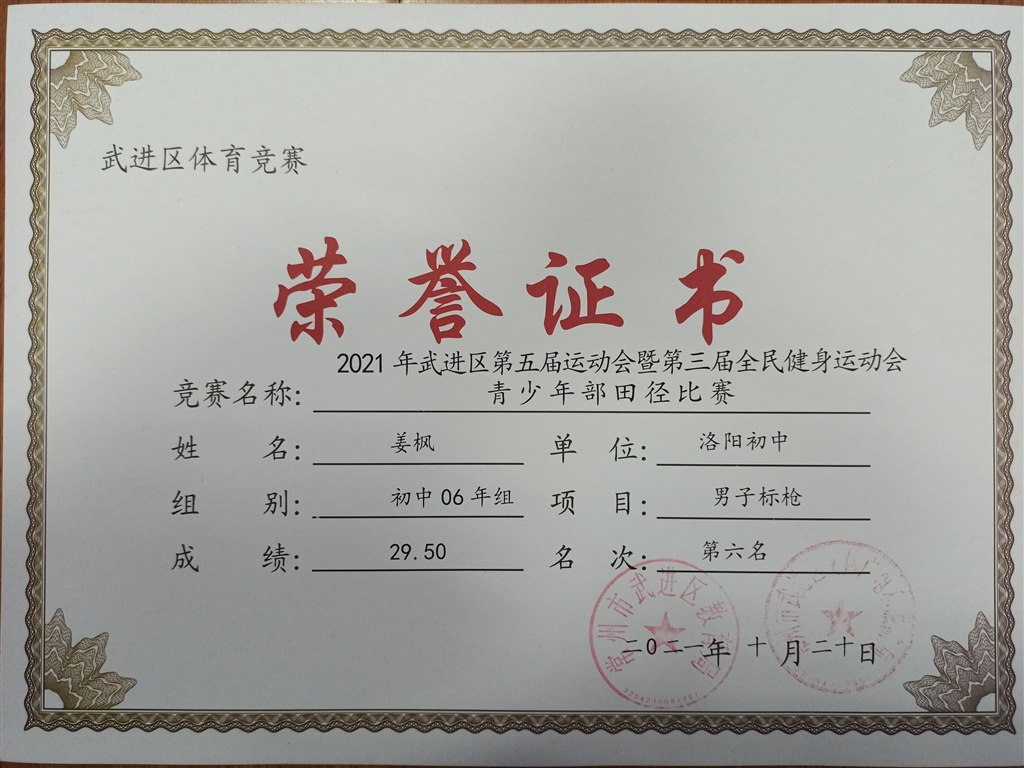 武进区体育竞赛
荣誉证书
2021年武进区第五届运动会暨第三届全民健身运动会
竞赛名称: 青少年部田径比赛
姓名: 姜枫 单位: 洛阳初中
组别: 初中06年组 项目: 男子标枪
成绩: 29.50 名次: 第六名
常州市武进区教育局
二0二一年十月二十日